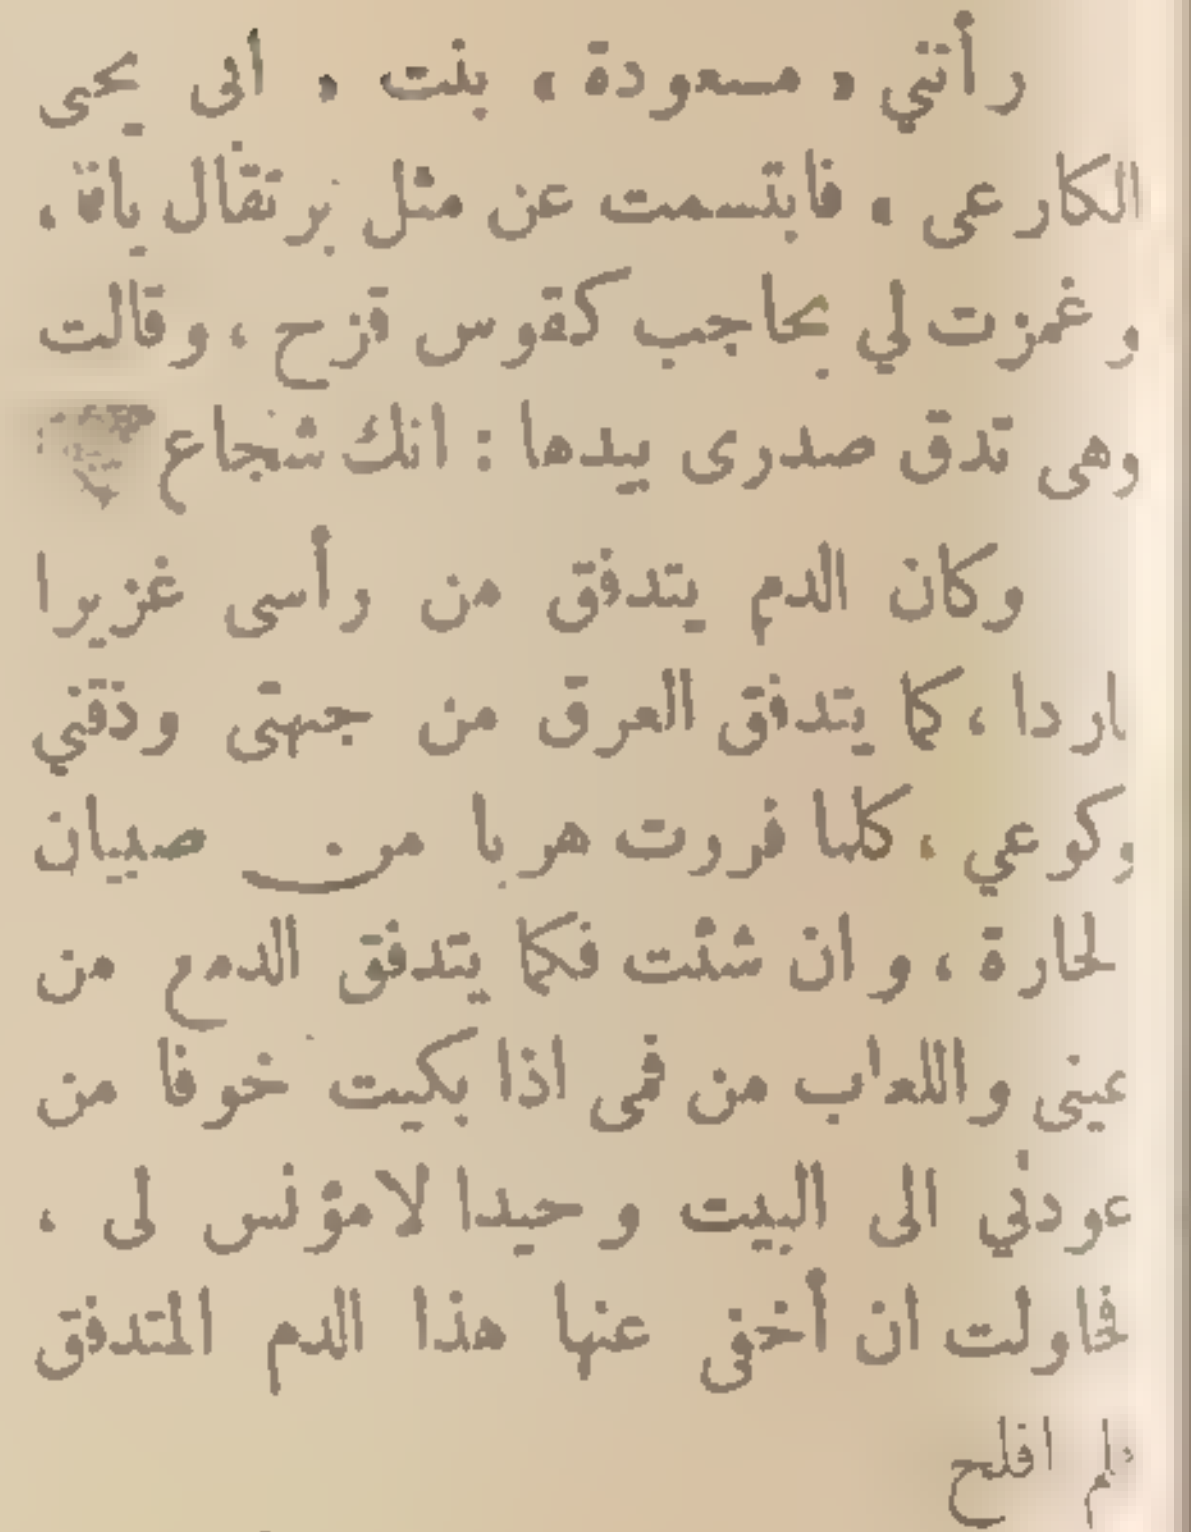 رأتني « مسعودة » بنت « أبى يحيى
الكارعى » فابتسمت عن مثل برتقال يافة ،
وغمزت لي بحاجب كقوس قزح ، وقالت
وهى تدق صدرى بيدها : انك شجاع
وكان الدم يتدفق من رأسى غزيرا
باردا ، كما يتدفق العرق من جبهتى وذقني
وكوعي ، كلما فررت هربا من صبيان
الحارة ، وان شئت فكما يتدفق الدمع من
عينى واللعاب من فمى اذا بكيت خوفا من
عودتي الى البيت وحيدا لا مؤنس لى ،
فحاولت ان أخفى عنها هذا الدم المتدفق
فلم افلح